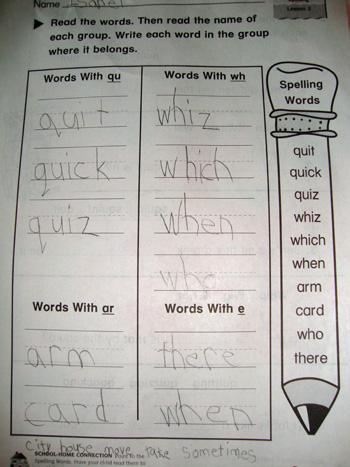 Name Isabel
Lesson 3
Read the words. Then read the name of
each group. Write each word in the group
where it belongs.
Words With qu
quit
quick
quiz
Words With wh
whiz
which
when
who
Words With ar
arm
card
Words With e
there
when
Spelling
Words
quit
quick
quiz
whiz
which
when
arm
card
who
there
City house move take sometimes
SCHOOL-HOME CONNECTION Point to the
Spelling Words. Have your child read them to